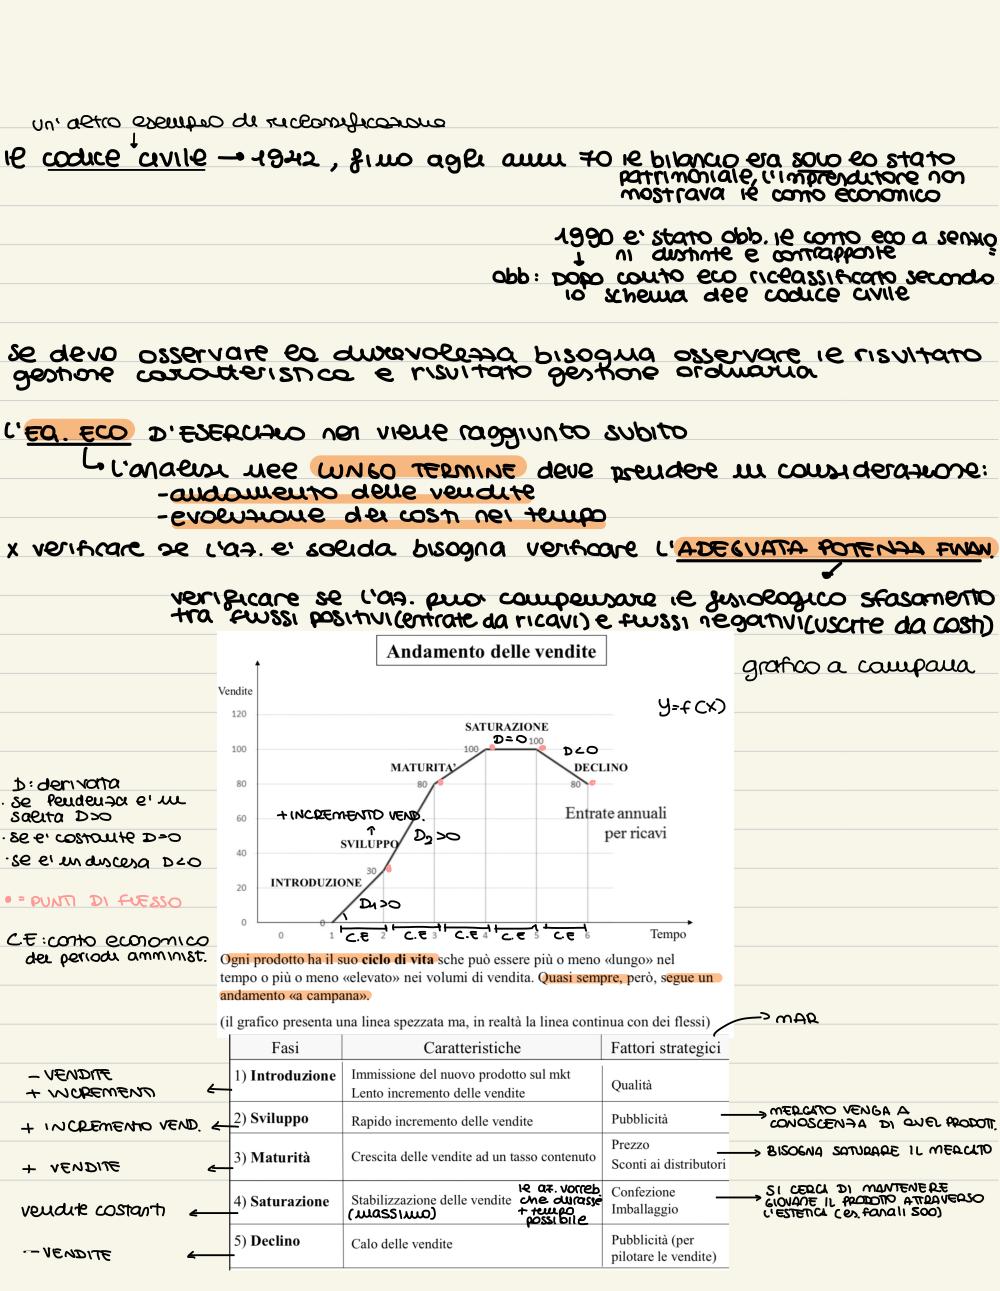 un' altro esempio di riclassificazione
il codice civile → 1942, fino agli anni 70 il bilancio era solo lo stato
patrimoniale, l'imprenditore non
mostrava il conto economico
1990 e' stato obb. il conto eco a sezio
ni distinte e contrapposte
obb: dopo conto eco riclassificato secondo
lo schema del codice civile
se devo osservare la durevolezza bisogna osservare il risultato
gestione caratteristica e risultato gestione ordinaria
L'EQ. ECO D'ESERCIZIO non viene raggiunto subito
L'analisi nel LUNGO TERMINE deve prendere in considerazione:
-andamento delle vendite
-evoluzione dei costi nel tempo
x verificare se l'az. e' solida bisogna verificare l'ADEGUATA POTENZA FINAN.
verificare se l'az. puoi compensare il fisiologico sfasamento
tra flussi positivi (entrate da ricavi) e flussi negativi (uscite da costi)
Andamento delle vendite
grafico a campana
Vendite
y=f(x)
120
SATURAZIONE
100
100 D=0 100 D<0
MATURITA' DECLINO
80
80 80
D: derivata
· se pendenza e' in
salita D>0
· se e' costante D=0
· se e' in discesa D<0
+ INCREMENTO VEND.
60
Entrate annuali
per ricavi
D2>0
SVILUPPO
40
30
INTRODUZIONE
20
D1>0
0
0
• = PUNTI DI FLESSO
C.E: conto economico
dei periodi amminist.
0 1 2 3 4 5 6 Tempo
C.E C.E C.E C.E C.E
Ogni prodotto ha il suo ciclo di vita sche può essere più o meno «lungo» nel
tempo o più o meno «elevato» nei volumi di vendita. Quasi sempre, però, segue un
andamento «a campana».
(il grafico presenta una linea spezzata ma, in realtà la linea continua con dei flessi)
→ MAR
Fasi Caratteristiche Fattori strategici
- VENDITE
+ INCREMENTI
1) Introduzione
Immissione del nuovo prodotto sul mkt
Lento incremento delle vendite
Qualità
+ INCREMENTO VEND.
2) Sviluppo
Rapido incremento delle vendite
Pubblicità
MERCATO VENGA A
CONOSCENZA DI QUEL PRODOTT.
+ VENDITE
3) Maturità
Crescita delle vendite ad un tasso contenuto
Prezzo
Sconti ai distributori
BISOGNA SATURARE IL MERCATO
vendite costanti
4) Saturazione
Stabilizzazione delle vendite
(massimo)
le az. vorreb
che durasse
+ tempo
possibile
Confezione
Imballaggio
SI CERCA DI MANTENERE
GIOVANE IL PRODOTTO ATTRAVERSO
L'ESTETICA (es. fanali 500)
- VENDITE
5) Declino
Calo delle vendite
Pubblicità (per
pilotare le vendite)